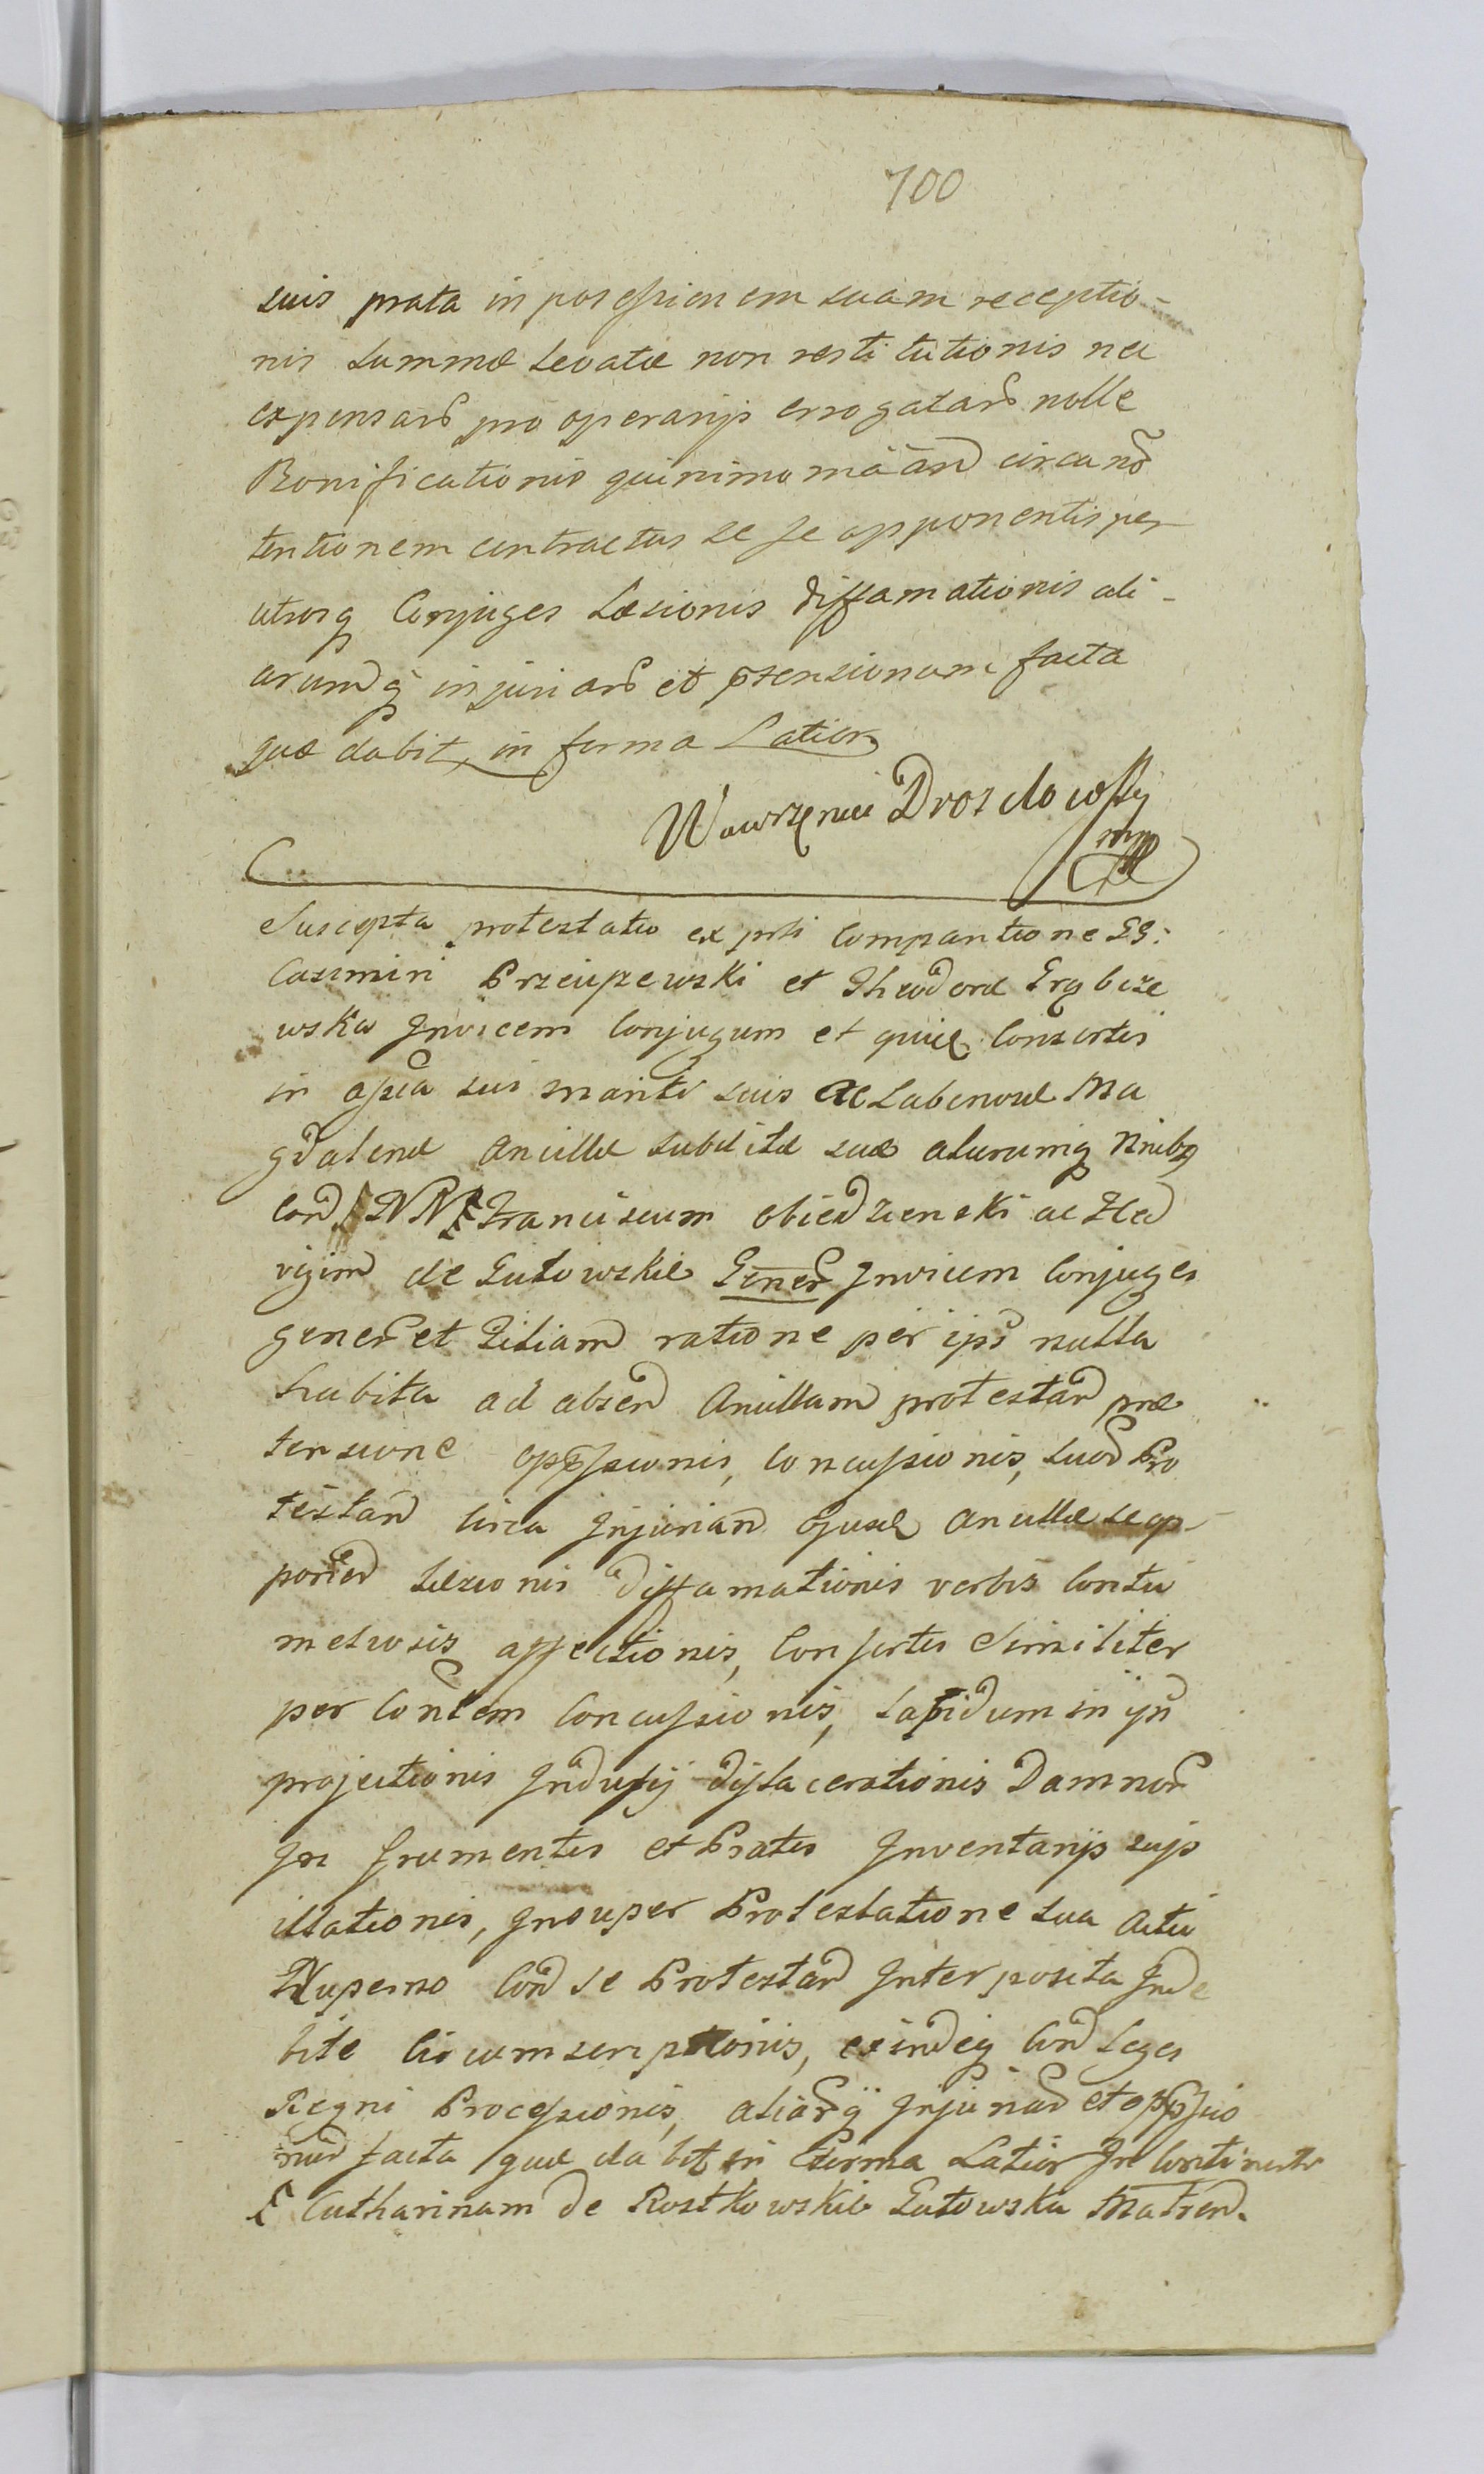 700
suis prata in possessionem suam receptio-
nis summæ levatæ non restitutionis nec
expensarũ pro operarijs errogatarũ nolle
Bonificationis quinimo circa
tentionem contractus se se opponentis per
utrosq Conjuges Læsionis diffamationis ali-
arumq injuriarũ et ptensionum facta
quæ dabit, in forma Latiori
Wawrzeniec Drozdowski
mp
Suscepta protestatio ex pti Compantione GG:
Casimiri Przeciszewski et Theodoræ
wska Invicem Conjugum et Consortis
in assia sui mariti suis ac Laboriosæ Ma
gdalenæ Ancillæ subditæ suæ aliarumq
Cond NN Franciscum Obiedzienski ac Hed
vigim de Gutowskie Gener Invicem Conjuges
gener et Filiam ratione per ips nulla
habita ad absen Ancillam protestan præ
tensione oppssionis, Concussionis, suor Pro
testan circa Injurian ejusd Ancillæ se op-
ponen Læsionis diffamationis verbis Contu
meliosis affectionis, Consortis Similiter
per Condem Concussionis, Lapidum in ips
projectionis Indusij dislacerationis Damnor
In frumentis et Pratis Inventarijs suis
illationis, Insuper Protestatione sua Actu
Nuperno Con se Protestan Interposita Inde
bite Circumscriptionis, exindeq Con Leges
Regni Processionis, aliarq Injuriar et oppssio
num facta quæ dabit in Forma Latiori In Continenti
Catharinam de Rostkowskie Gutowska Matrem.